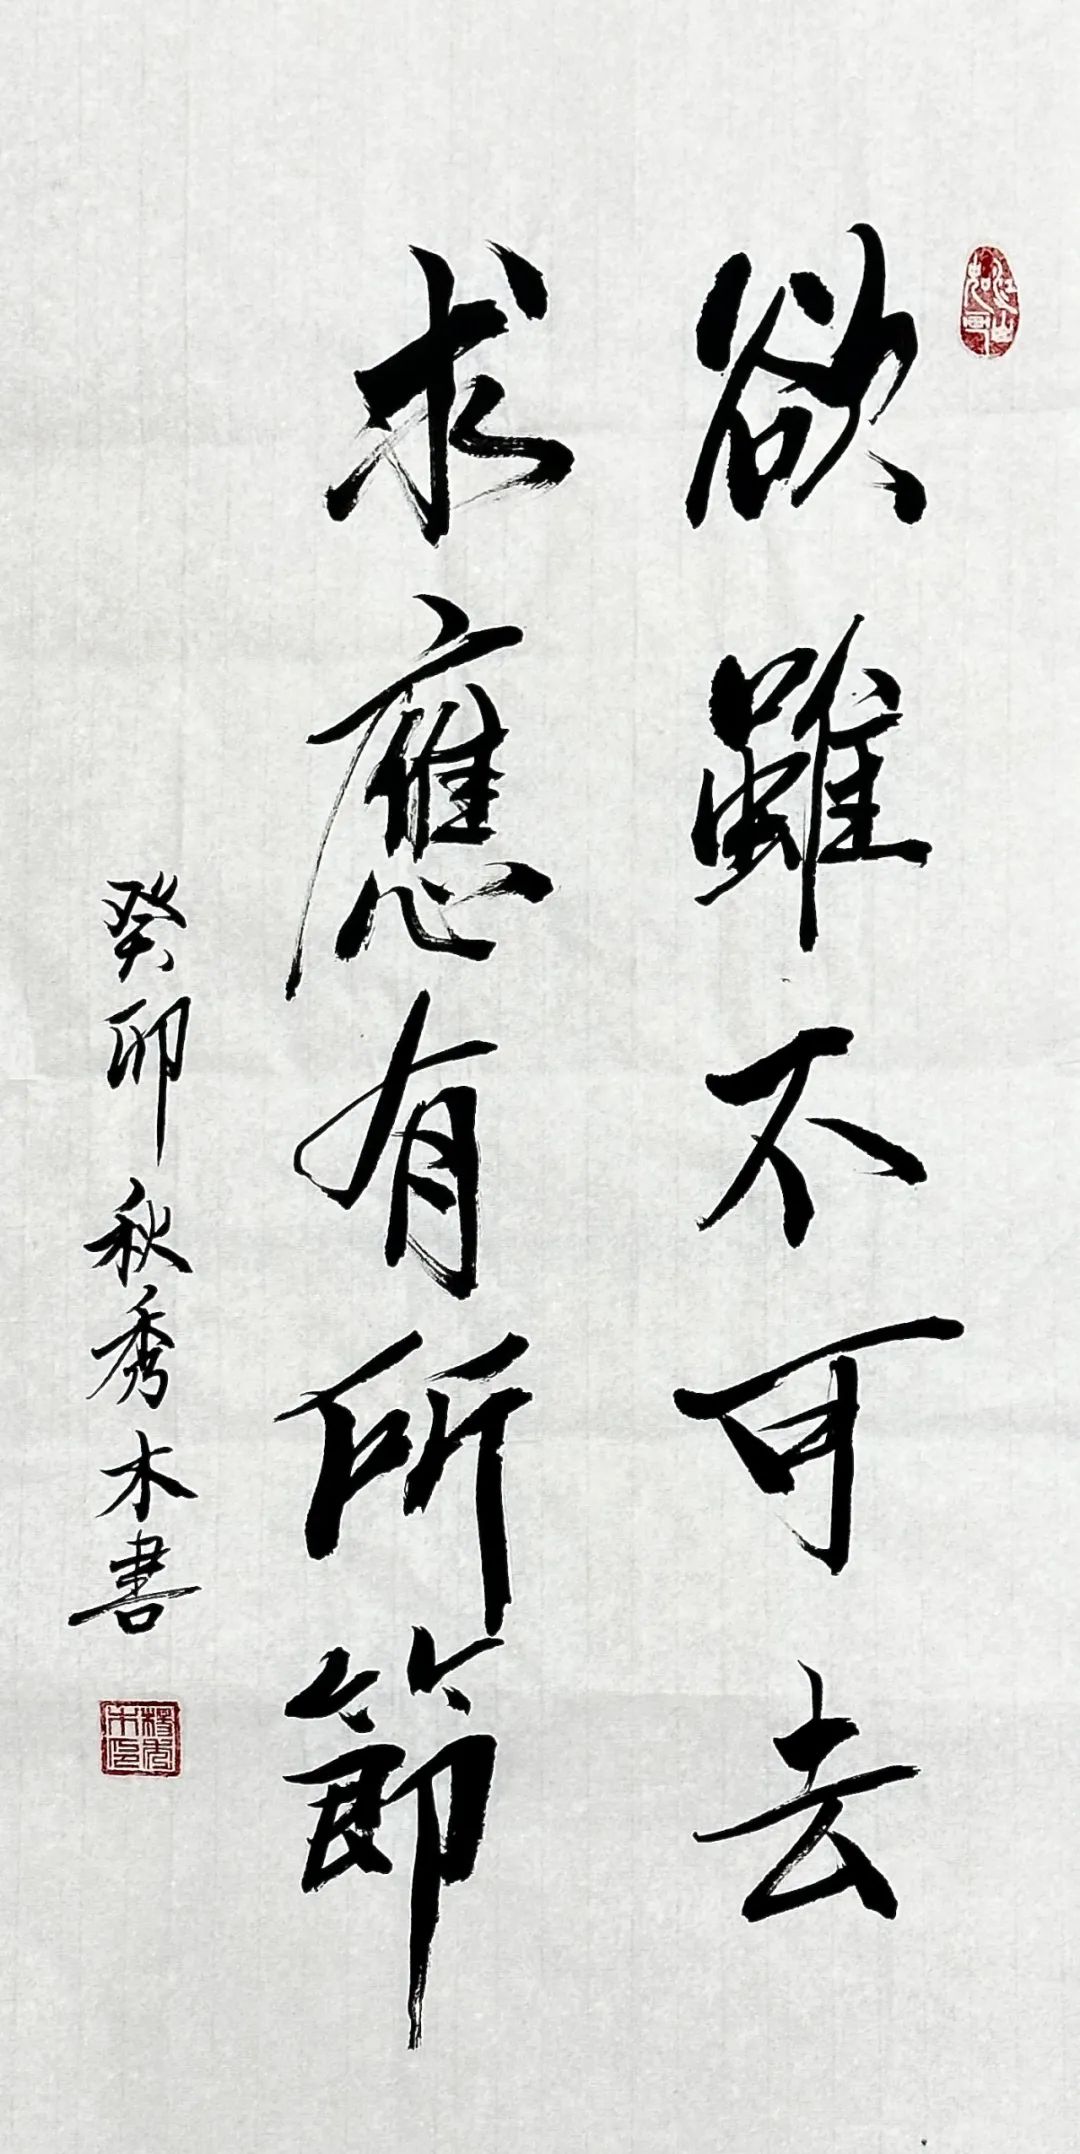 欲雖不可去
求應有所節
癸卯秋秀木書
江山如画